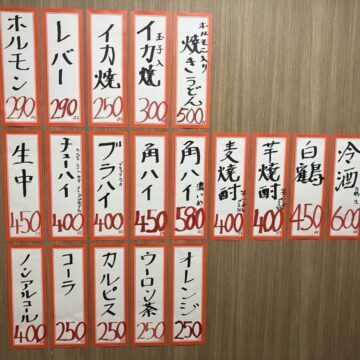 ホルモン
290円
レバー
290円
イカ焼
250円
玉子入
イカ焼
300円
ホルモン入り
焼きうどん
500円
生中
450
チューハイ
400
ブラハイ
400
角ハイ
450
角ハイ
濃いめ
580
麦焼酎
400
芋焼酎
400
白鶴
450
冷酒
600
ノンアルコール
400
コーラ
250
カルピス
250
ウーロン茶
250
オレンジ
250